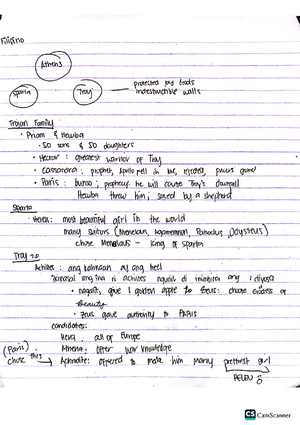 Filipino
Athens
Sparta
Troy
protected by Gods
indestructible walls
Trojan Family
• Priam & Hecuba
• 50 sons & 50 daughters
• Hector : greatest warrior of Troy
• Cassandra : prophet, Apollo fell in love, rejected,
• Paris : prophecy he will cause Troy's downfall
Hecuba threw him ; saved by a shepherd
Sparta
• Helen : most beautiful girl in the world
many suitors (Menelaus, Agamemnon, Patroclus, Odysseus)
chose Menelaus - king of Sparta
Troy 2.0
Achilles : ang kahinaan ay ang heel
ang ina ni achilles ngunit di inimbita ang 1 diyosa
• nagalit, give 1 golden apple to Zeus: choose Goddess of
beauty
• Zeus gave authority to PARIS
candidates:
Hera : all of Europe
Athena: offer war knowledge
(Paris) chose this → Aphrodite: offered to make him marry prettiest girl
HELEN
CS CamScanner